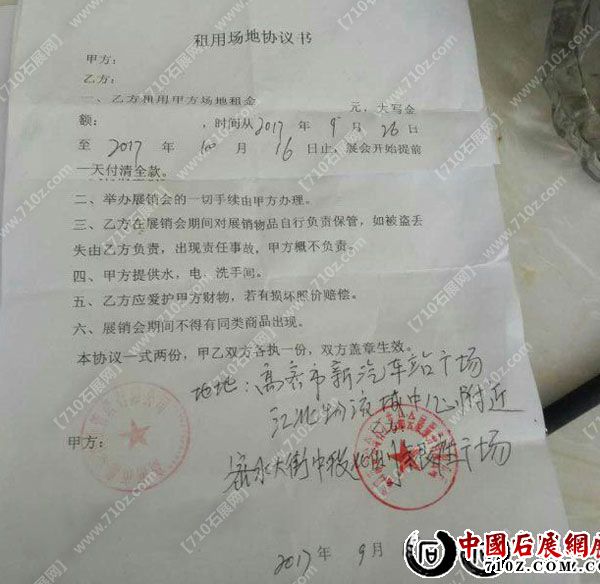 租用场地协议书
甲方：
乙方：
一、乙方租用甲方场地租金 元，大写金
额： ，时间从2017年9月26日
至2017年 月16日止，展会开始提前
一天付清全款。
二、举办展销会的一切手续由甲方办理。
三、乙方在展销会期间对展销物品自行负责保管，如被盗丢
失由乙方负责，出现责任事故，甲方概不负责。
四、甲方提供水，电、洗手间。
五、乙方应爱护甲方财物，若有损坏照价赔偿。
六、展销会期间不得有同类商品出现。
本协议一式两份，甲乙双方各执一份，双方盖章生效。
地地：高密市新汽车站广场
江北物流城中心附近
甲方：
密水大街中段 广场
2017年9月
中國石展網
www.710z.com
【710石展网】